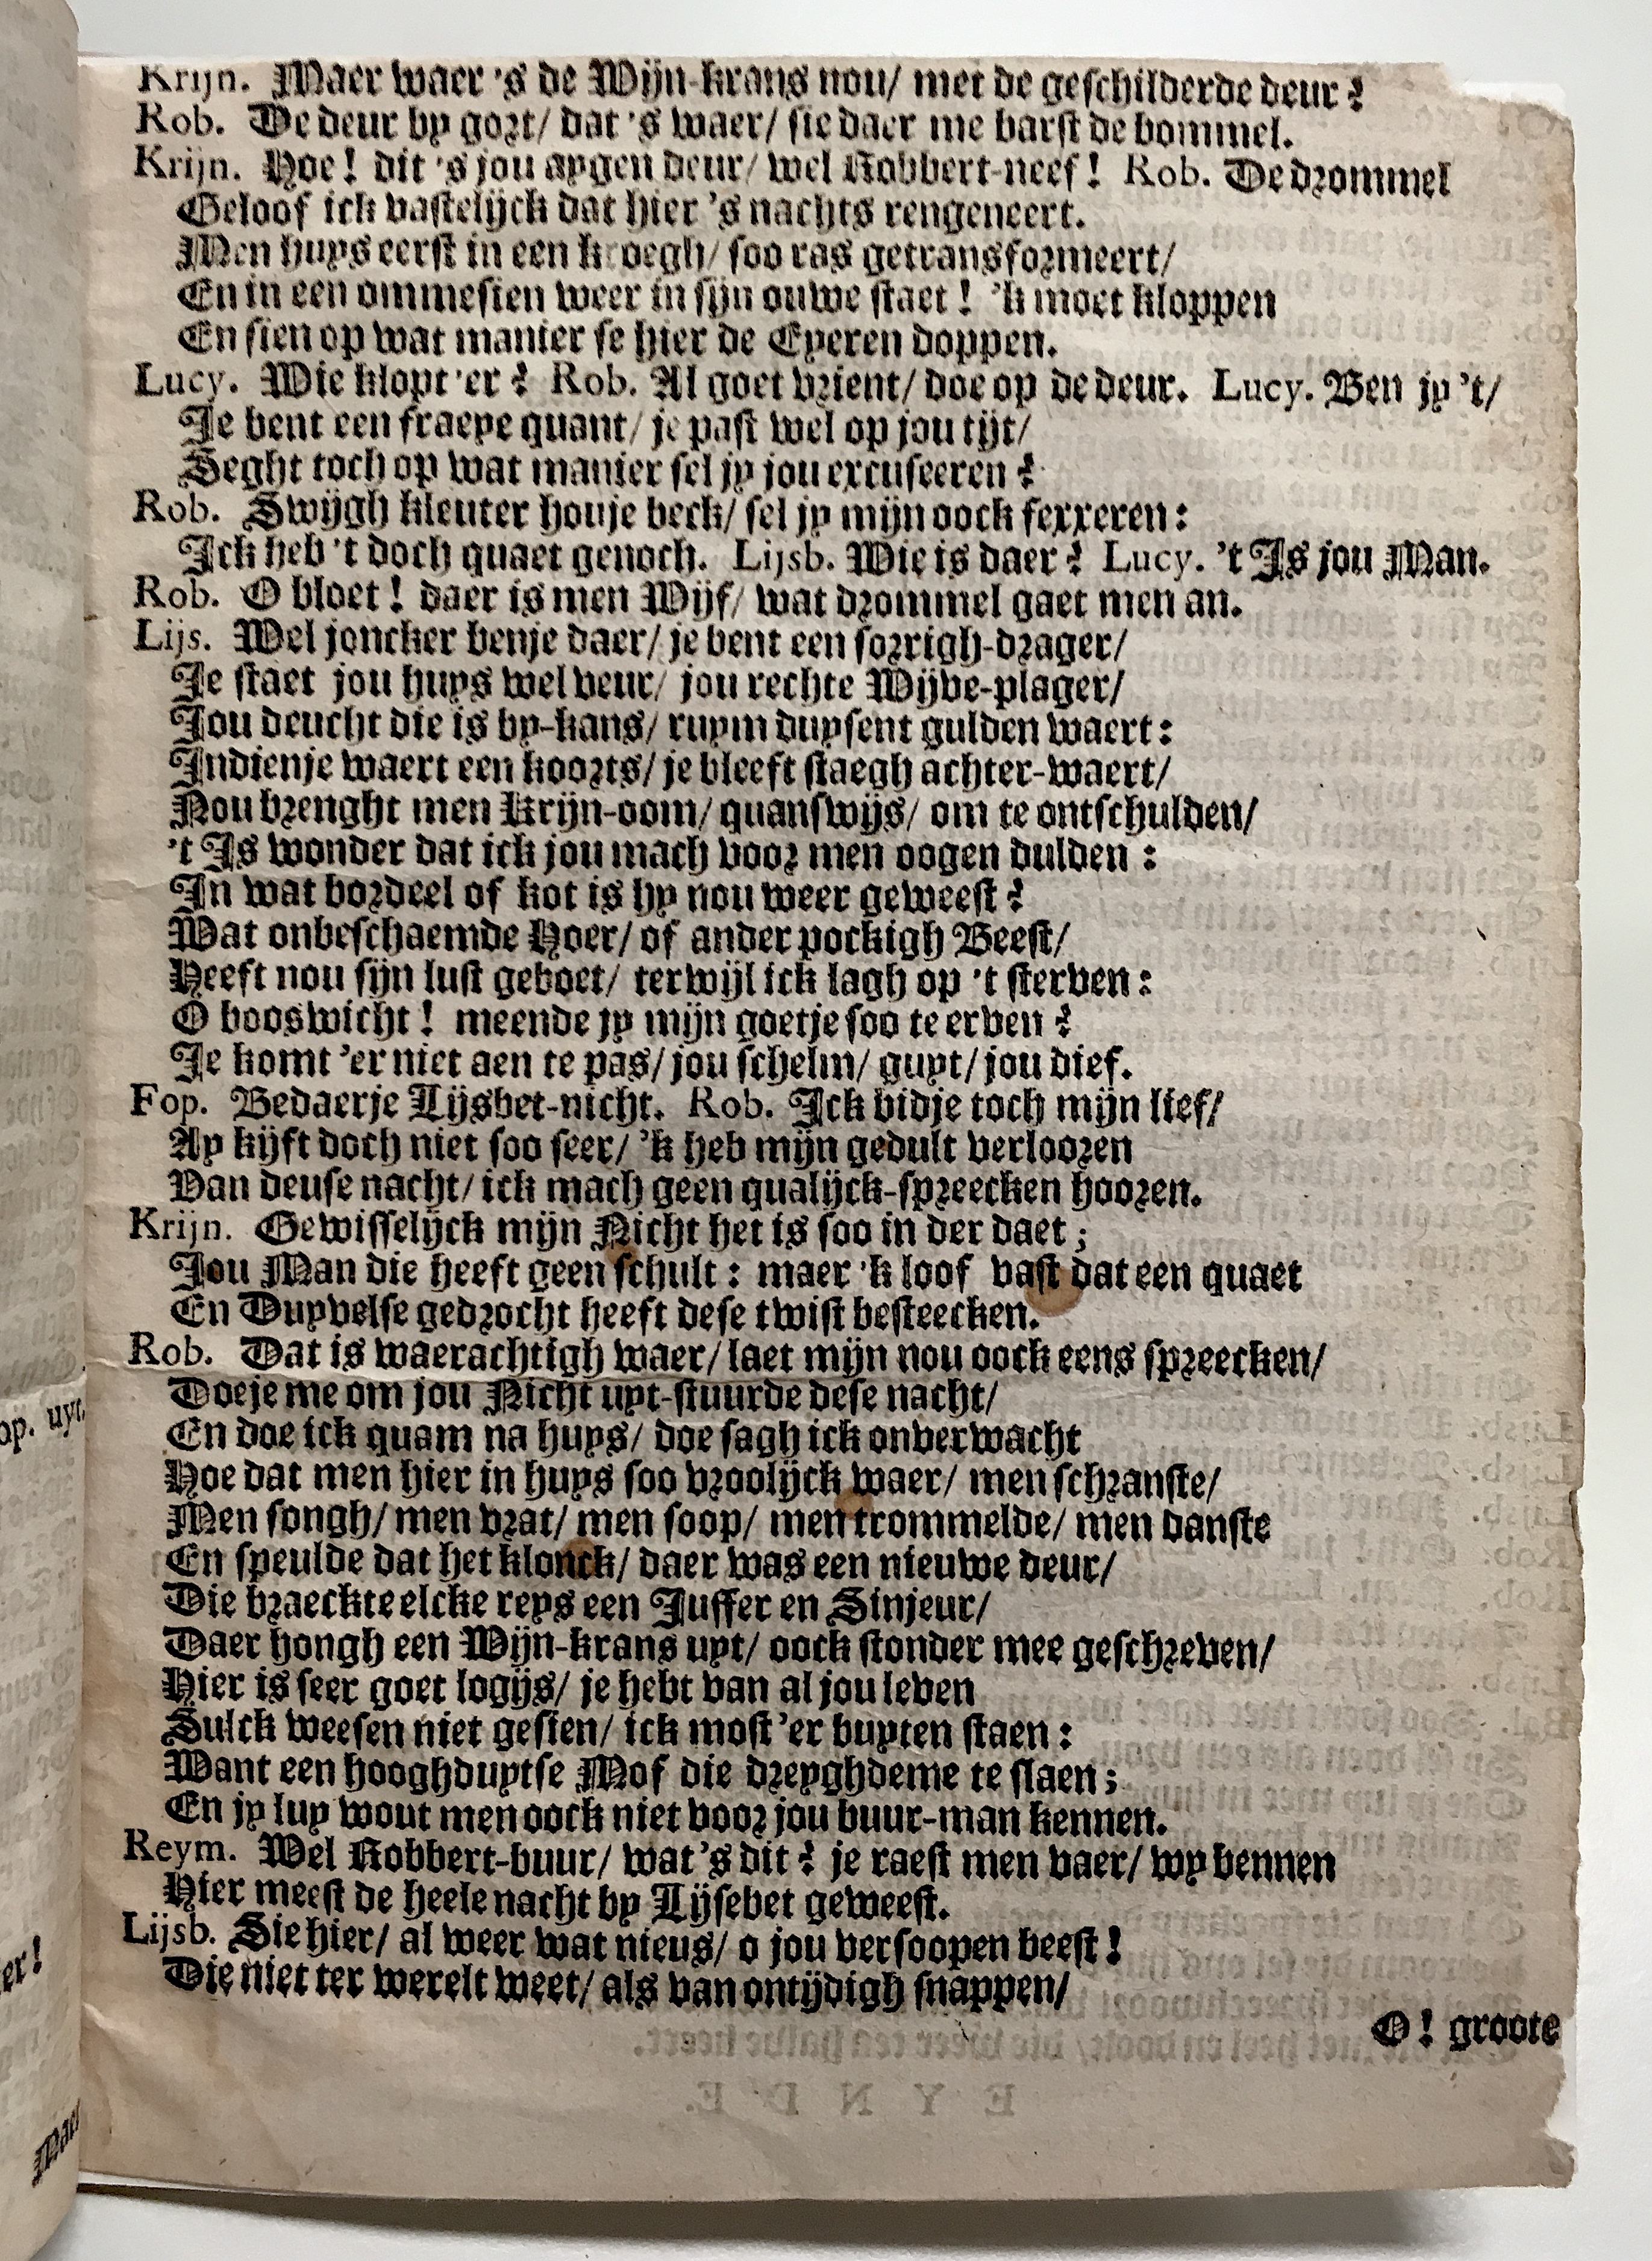 Krijn. Maer waer 's de Wijn-krans nou/ met de geschilderde deur?
Rob. De deur by gort/ dat 's waer/ sie daer me barst de bommel.
Krijn. Hoe! dit 's jou aygen deur/ wel Robbert-neef! Rob. De drommel
Geloof ick vastelijck dat hier 's nachts rengeneert.
Men huys eerst in een kroegh/ soo ras getransformeert/
En in een ommesien weer in sijn ouwe staet! 'k moet kloppen
En sien op wat manier se hier de Eyeren doppen.
Lucy. Wie klopt 'er? Rob. Al goet vrient/ doe op de deur. Lucy. Ben jy 't/
Je bent een fraeye quant/ je past wel op jou tijt/
Seght toch op wat manier sel jy jou excuseeren?
Rob. Swijgh kleuter houje beck/ sel jy mijn oock fexxeren:
Ick heb 't doch quaet genoch. Lijsb. Wie is daer? Lucy. 't Is jou Man.
Rob. O bloet! daer is men Wijf/ wat drommel gaet men an.
Lijs. Wel joncker benje daer/ je bent een sorrigh-drager/
Je staet jou huys wel veur/ jou rechte Wijve-plager/
Jou deucht die is by-kans/ ruym duysent gulden waert:
Indienje waert een koorts/ je bleeft staegh achter-waert/
Nou brenght men Krijn-oom/ quanswijs/ om te ontschulden/
't Is wonder dat ick jou mach voor men oogen dulden:
In wat bordeel of kot is hy nou weer geweest?
Wat onbeschaemde Hoer/ of ander pockigh Beest/
Heeft nou sijn lust geboet/ terwijl ick lagh op 't sterven:
O booswicht! meende jy mijn goetje soo te erven?
Je komt 'er niet aen te pas/ jou schelm/ guyt/ jou dief.
Fop. Bedaerje Lijsbet-nicht. Rob. Ick bidje toch mijn lief/
Ay kijft doch niet soo seer/ 'k heb mijn gedult verlooren
Van deuse nacht/ ick mach geen qualijck-spreecken hooren.
Krijn. Gewisselijck mijn Nicht het is soo in der daet;
Jou Man die heeft geen schult: maer 'k loof vast dat een quaet
En Duyvelse gedrocht heeft dese twist besteecken.
Rob. Dat is waerachtigh waer/ laet mijn nou oock eens spreecken/
Doeje me om jou Nicht uyt-stuurde dese nacht/
En doe ick quam na huys/ doe sagh ick onverwacht
Hoe dat men hier in huys soo vroolijck waer/ men schranste/
Men songh/ men vrat/ men soop/ men trommelde/ men danste
En speulde dat het klonck/ daer was een nieuwe deur/
Die braeckte elcke reys een Juffer en Sinjeur/
Daer hongh een Wijn-krans uyt/ oock stonder mee geschreven/
Hier is seer goet logijs/ je hebt van al jou leven
Sulck weesen niet gesien/ ick most 'er buyten staen:
Want een hooghduytse Mof die dreyghdeme te slaen;
En jy luy wout men oock niet voor jou buur-man kennen.
Reym. Wel Robbert-buur/ wat's dit? je raest men vaer/ wy bennen
Hier meest de heele nacht by Lijsebet geweest.
Lijsb. Sie hier/ al weer wat nieus/ o jou versoopen beest!
Die niet ter werelt weet/ als van ontijdigh snappen/
O! groote